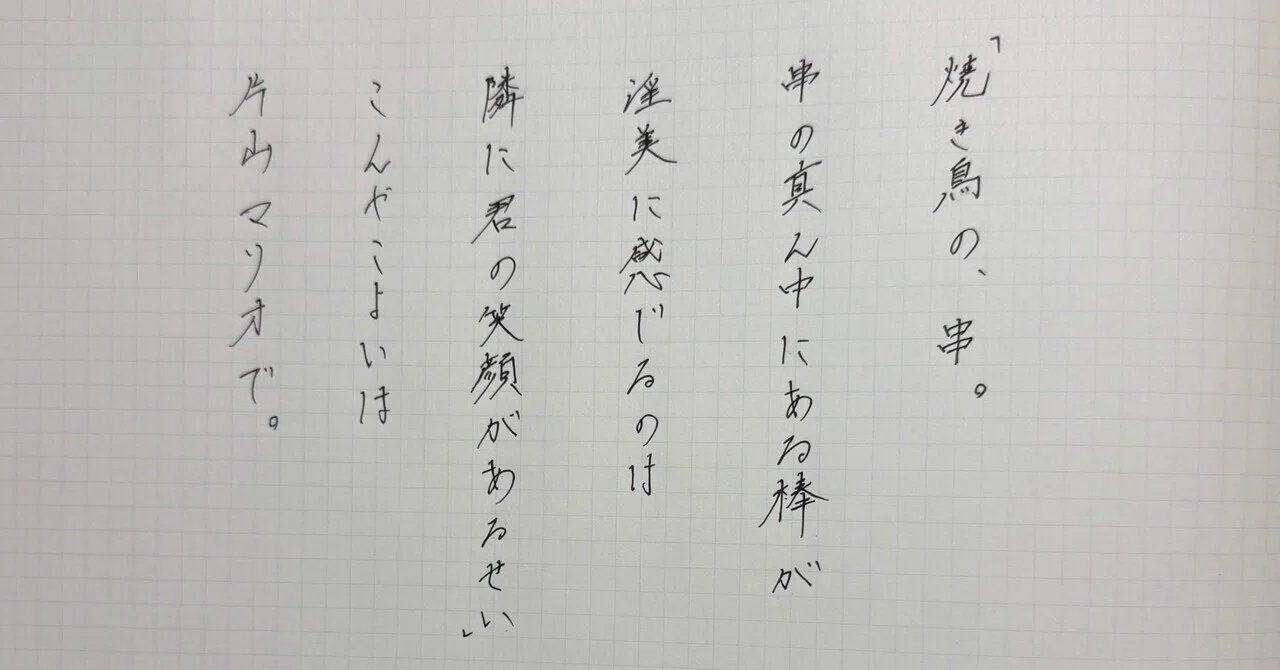 「焼き鳥の、串。
串の真ん中にある棒が
淫美に感じるのは
隣に君の笑顔があるせい」
こんやこよいは
片山マリオで。